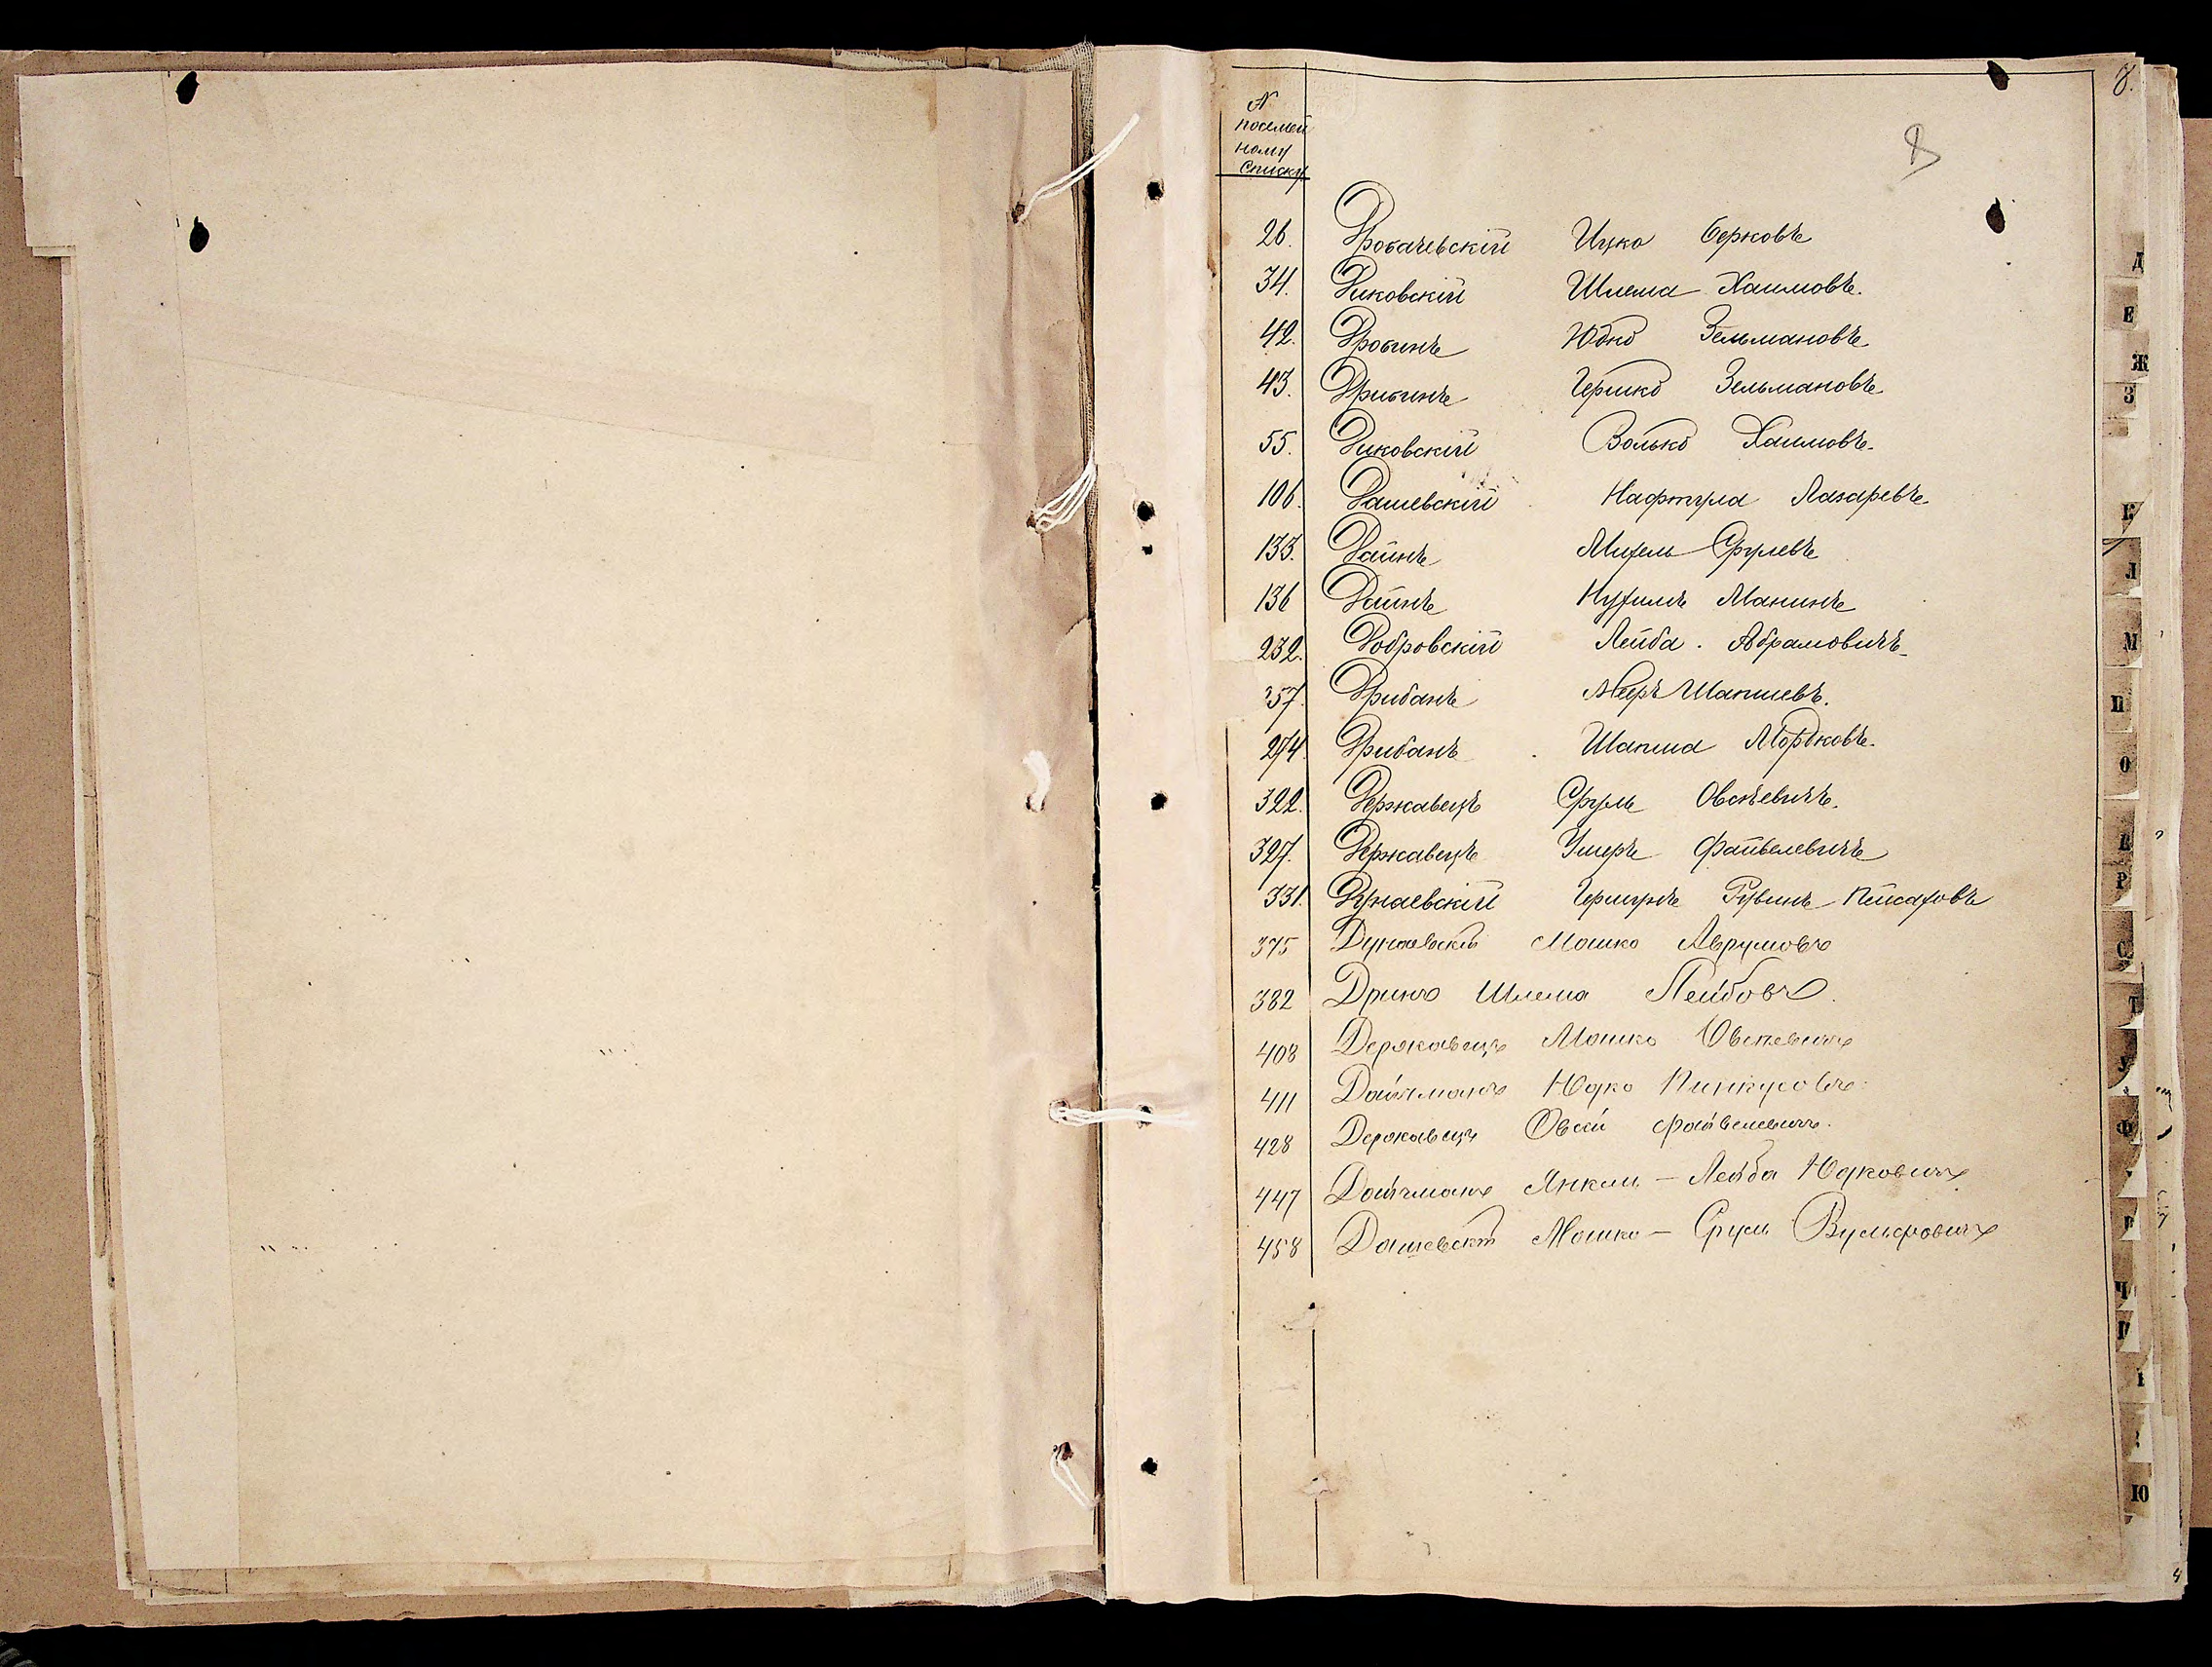 8.
8
№
посемей
ному
списку
26. Дробачевскій Ицко Берковъ
34. Диковскій Шлема Хаимовъ.
42. Дробинъ Юдко Зельмановъ
43. Дрибинъ Гершко Зельмановъ
55. Диковскій Волько Хаимовъ.
106. Дашевскій Нафтула Лазаревъ
133. Дайнъ Срулевъ
136 Дайнъ Нухимъ Манинъ
232. Добровскій Лейба. Абрамовичъ
257. Дрибанъ Меръ Шапшевъ.
274. Дрибанъ Шапша Мордковъ.
322. Державецъ Сруль Овсѣевичъ.
327. Державецъ Ушеръ Файвелевичъ
331. Дунаевскій Гершунъ Рувинъ Пейсаховъ
375 Дунаевскій Мошко Аврумовъ
382 Дринъ Шлема Лейбовъ.
408 Державецъ Мошко Овсѣевичъ
411 Дайчманъ Юдко Пинкусовъ
428 Державецъ Овсій Файвелевичъ.
447 Дайчманъ Янкель - Лейба Юдковичъ
458 Дашевскій Мошко - Сруль Вульфовичъ
Д
Е
Ж
З
К
Л
М
Н
О
П
Р
С
Т
У
Ф
Ч
Ю